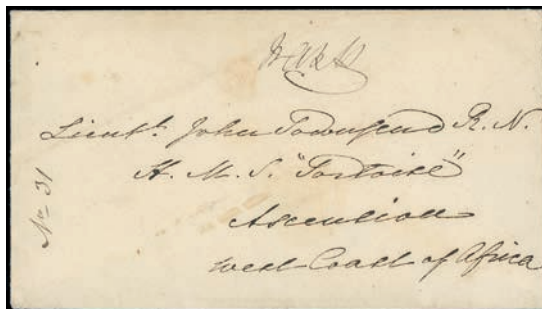 Lieut. John Townsend R.N.
H. M. S. "Tortoise"
Ascension
West Coast of Africa
No 31